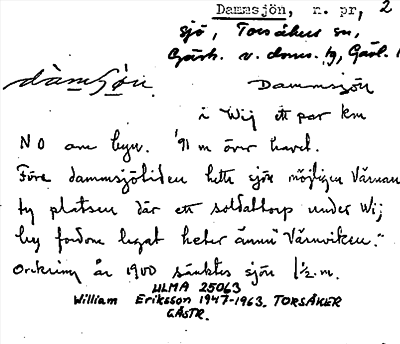 Dammsjön, n. pr, 2
sjö, Torsåkers sn,
Gästr. v. doms. lg, Gävl. l
dàmſön. Dammsjön
i Wij ett par km
NO om byn. 91 m över havet.
Före dammsjötiden hette sjön möjligen Värnan
ty platsen där ett soldattorp under Wij
by fordom legat heter ännu "Värnviken."
Omkring år 1900 sänktes sjön 1½ m.
ULMA 25063
William Eriksson 1947-1963. TORSÅKER
GÄSTR.